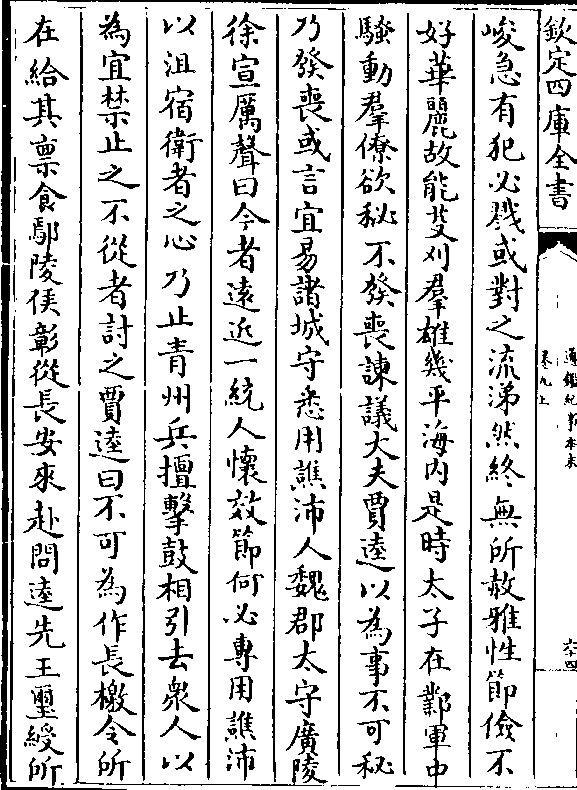 欽定四庫全書
通鑑紀事本末
卷九上
六十四
峻急有犯必戮或對之流涕然終無所赦雅性節儉不
好華麗故能芟刈羣雄幾平海内是時太子在鄴軍中
騷動羣僚欲秘不發喪諫議大夫賈逵以為事不可秘
乃發喪或言宜易諸城守悉用譙沛人魏郡太守廣陵
徐宣厲聲曰今者遠近一統人懷效節何必專用譙沛
以沮宿衛者之心乃止青州兵擅擊鼓相引去衆人以
為宜禁止之不從者討之賈逵曰不可為作長檄令所
在給其禀食鄢陵侯彰從長安來赴問逵先王璽綬所